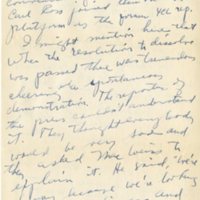 Carl Ross joined them on
platform as the former YCL rep.
I might mention here that
when the resolution to dissolve
was passed there was tremendous
cheering & a spontaneous
demonstration. The reporters of
the press couldn't understand
it. They thought everybody
would be very sad and
they asked Mac Weiss to
explain it. He said, "we're
because we're looking
and